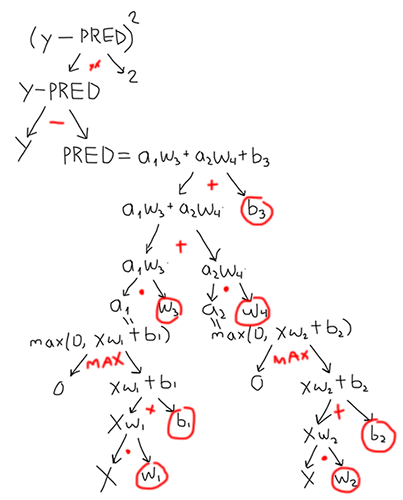 (y − PRED)²
** 2
Y−PRED
−
Y PRED = a₁w₃ + a₂w₄ + b₃
+
a₁w₃ + a₂w₄ b₃
+
a₁w₃ a₂w₄
a₁ • w₃ a₂ • w₄
max(0, xw₁ + b₁) max(0, xw₂ + b₂)
MAX MAX
0 xw₁ + b₁ 0 xw₂ + b₂
+ +
xw₁ b₁ xw₂ b₂
• •
X w₁ X w₂